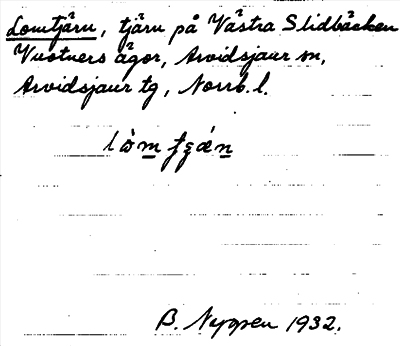 Lomtjärn, tjärn på Västra Slidbäcken
Vuotners ägor, Arvidsjaur sn,
Arvidsjaur tg, Norrb. l.
B. Nygren 1932.